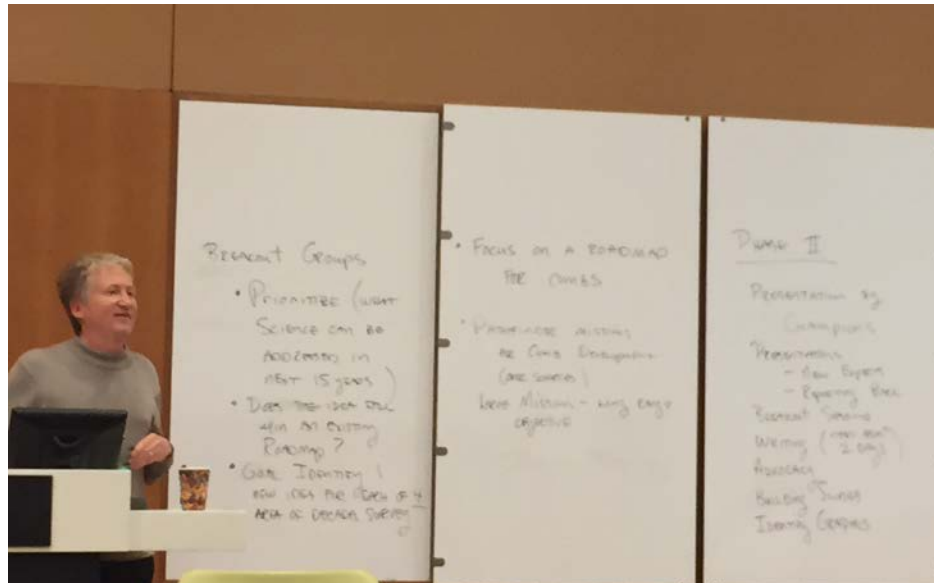 Breakout Groups
• Prioritize (what
Science can be
addressed in
next 15 years)
• Does the idea
an existing
Roadmap?
• Goal Identify 1
new idea for each of 4
area of Decadal Survey
• Focus on a roadmap
for combs
• Pathfinder missions
for Comb Development
Large Mission -
objective
Phase II
Presentation by
Champions
Presentations
- New Experts
- Reporting Back
Breakout Sessions
Writing (
2 days)
Advocacy
Building
Identify Graphics